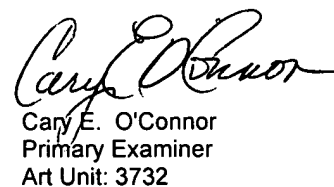 Cary E. O'Connor
Cary E. O'Connor
Primary Examiner
Art Unit: 3732